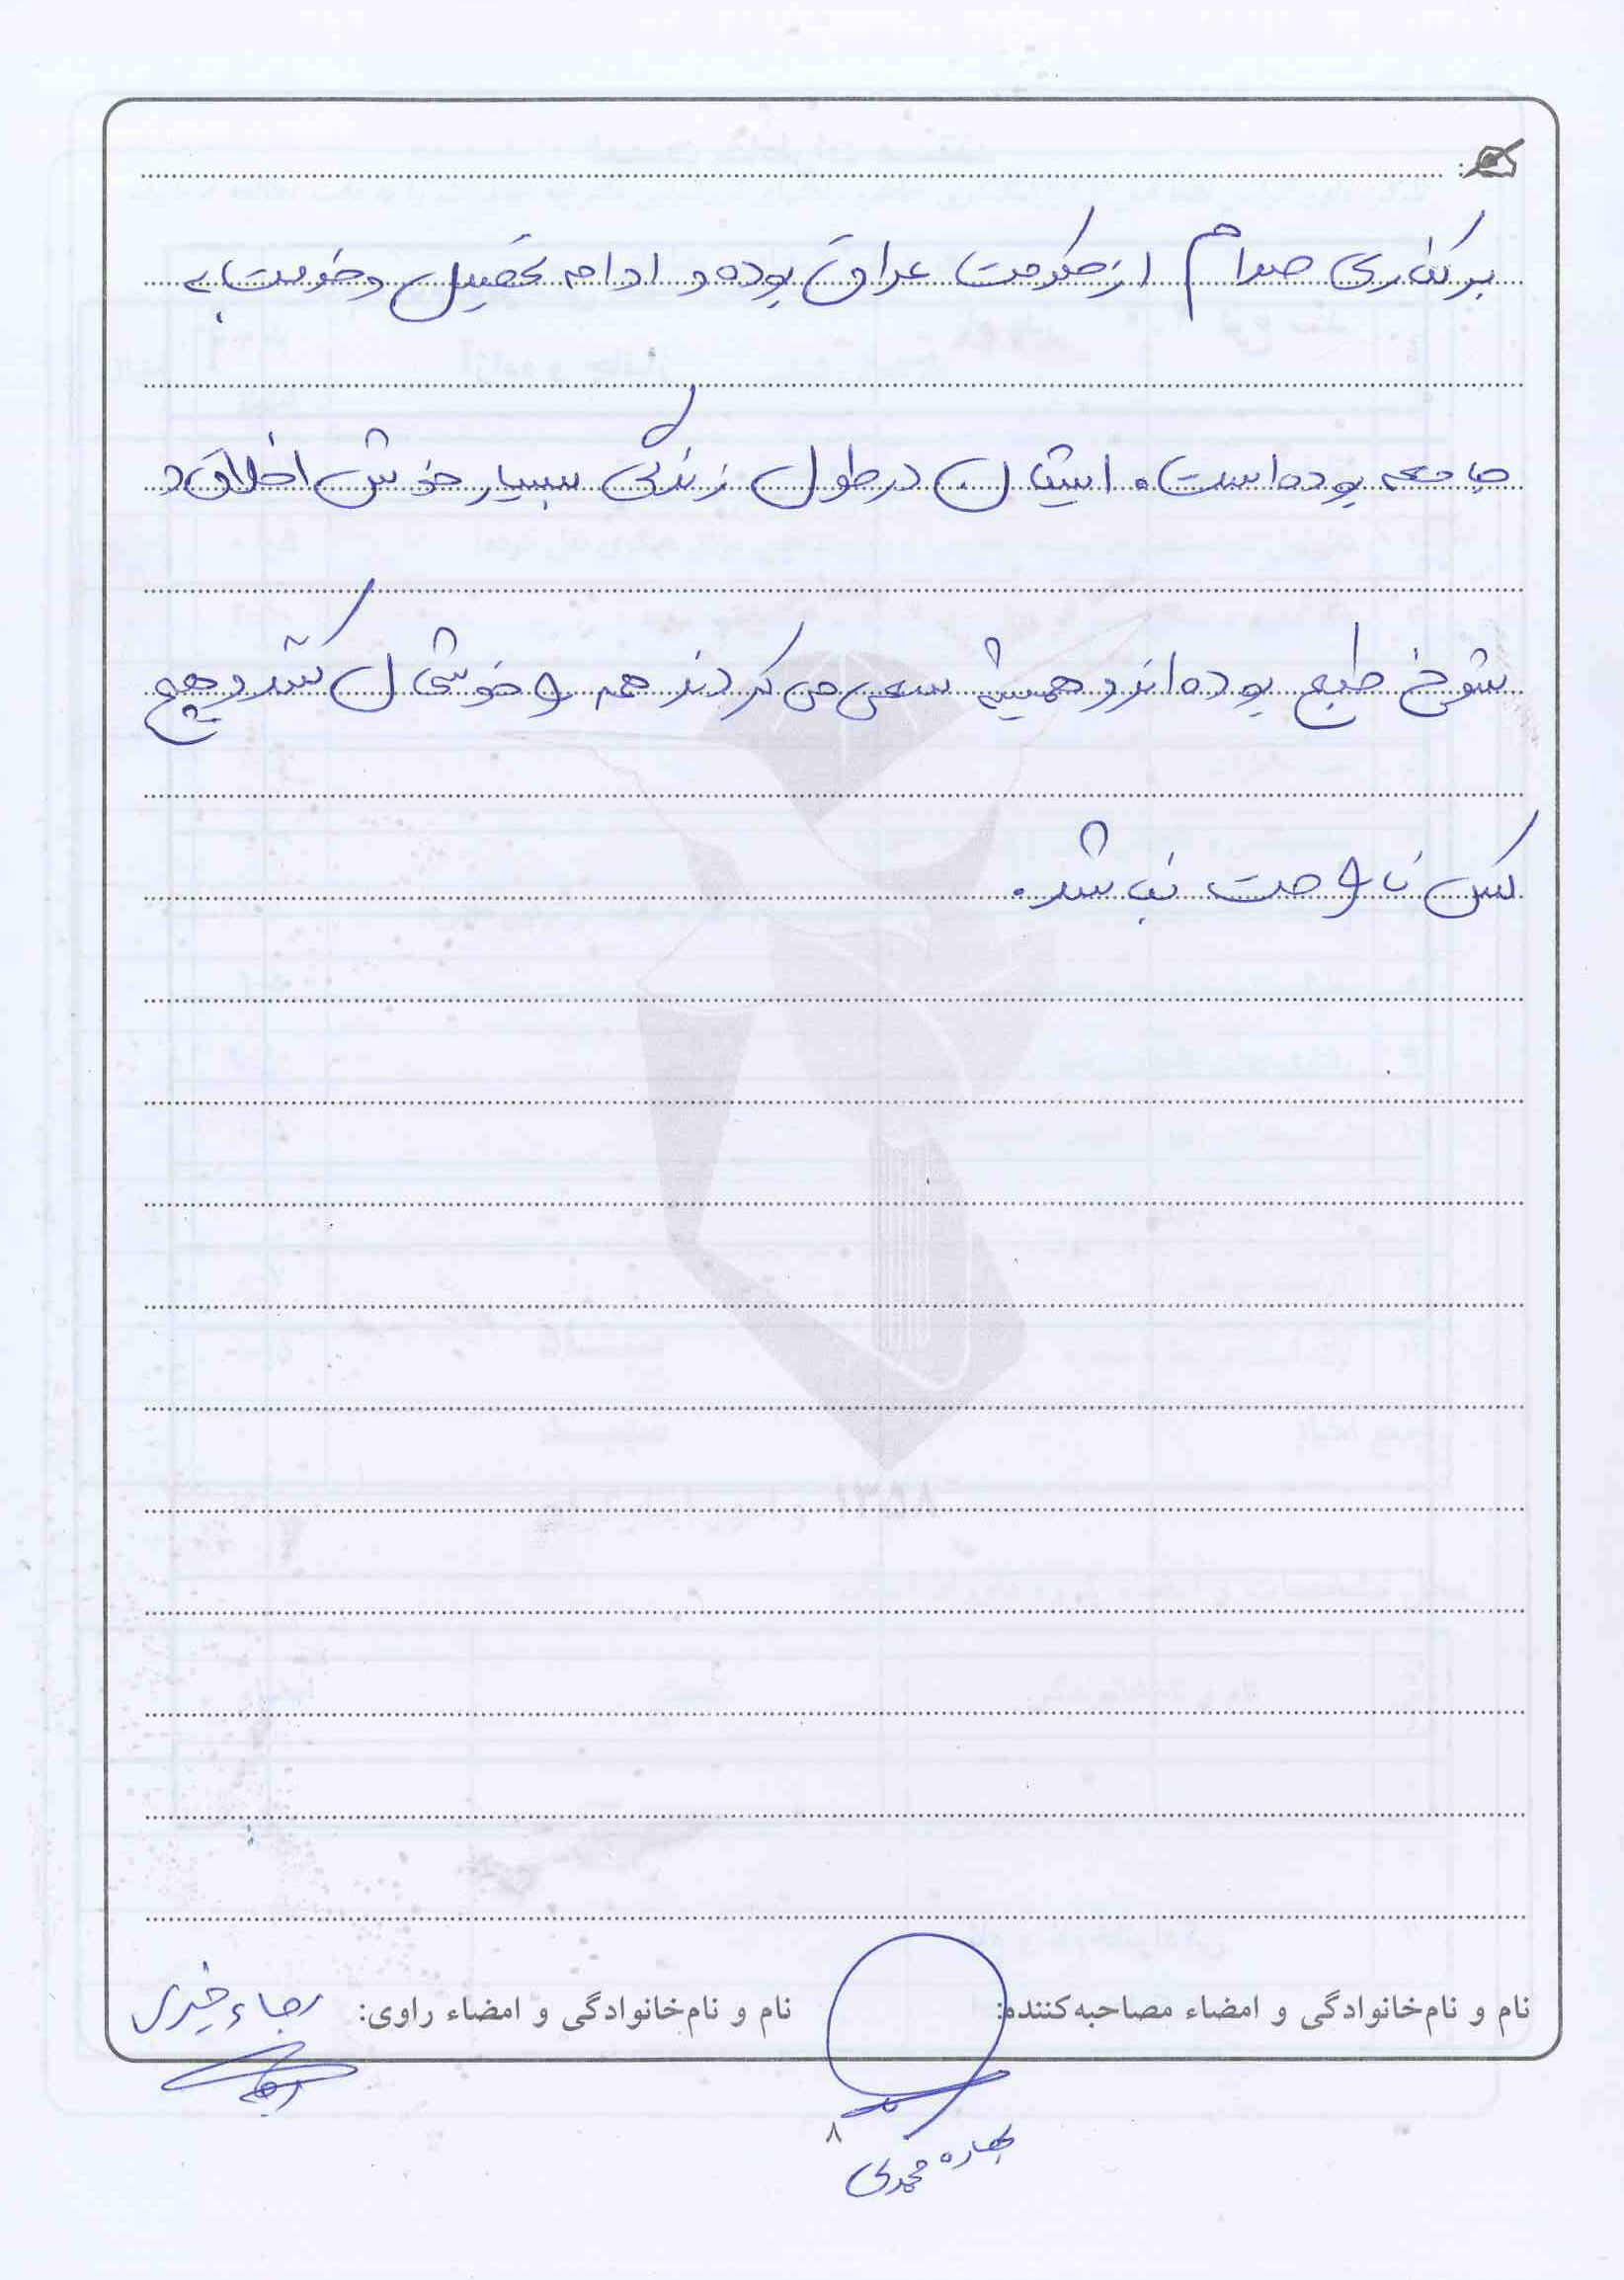 برکناری صدام از حکومت عراق بوده و ادامه تحصیل و خدمت به
جامعه بوده است. ایشان در طول زندگی بسیار خوش اخلاق و
شوخ طبع بوده اند و همیشه سعی می کردند همه را خوشحال کنند و هیچ
کس ناراحت نباشد.
نام و نام‌خانوادگی و امضاء مصاحبه‌کننده:
نام و نام‌خانوادگی و امضاء راوی: رجاء خیری
۸
بهاره محمدی